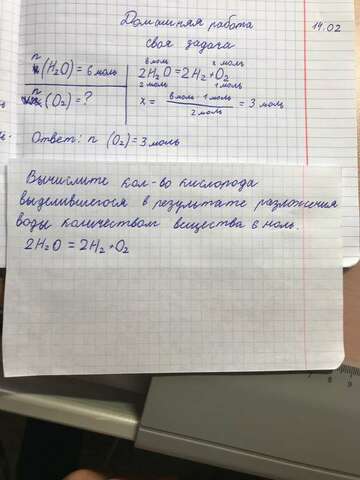 Домашняя работа 14.02
своя задача
n (H₂O) = 6 моль
6 моль x моль
2H₂O = 2H₂ + O₂
2 моль 1 моль
n (O₂) = ?
x = 6 моль · 1 моль / 2 моль = 3 моль
Ответ: n (O₂) = 3 моль
Вычислите кол-во кислорода
выделившегося в результате разложения
воды количеством вещества 6 моль.
2H₂O = 2H₂ + O₂
7 8 9